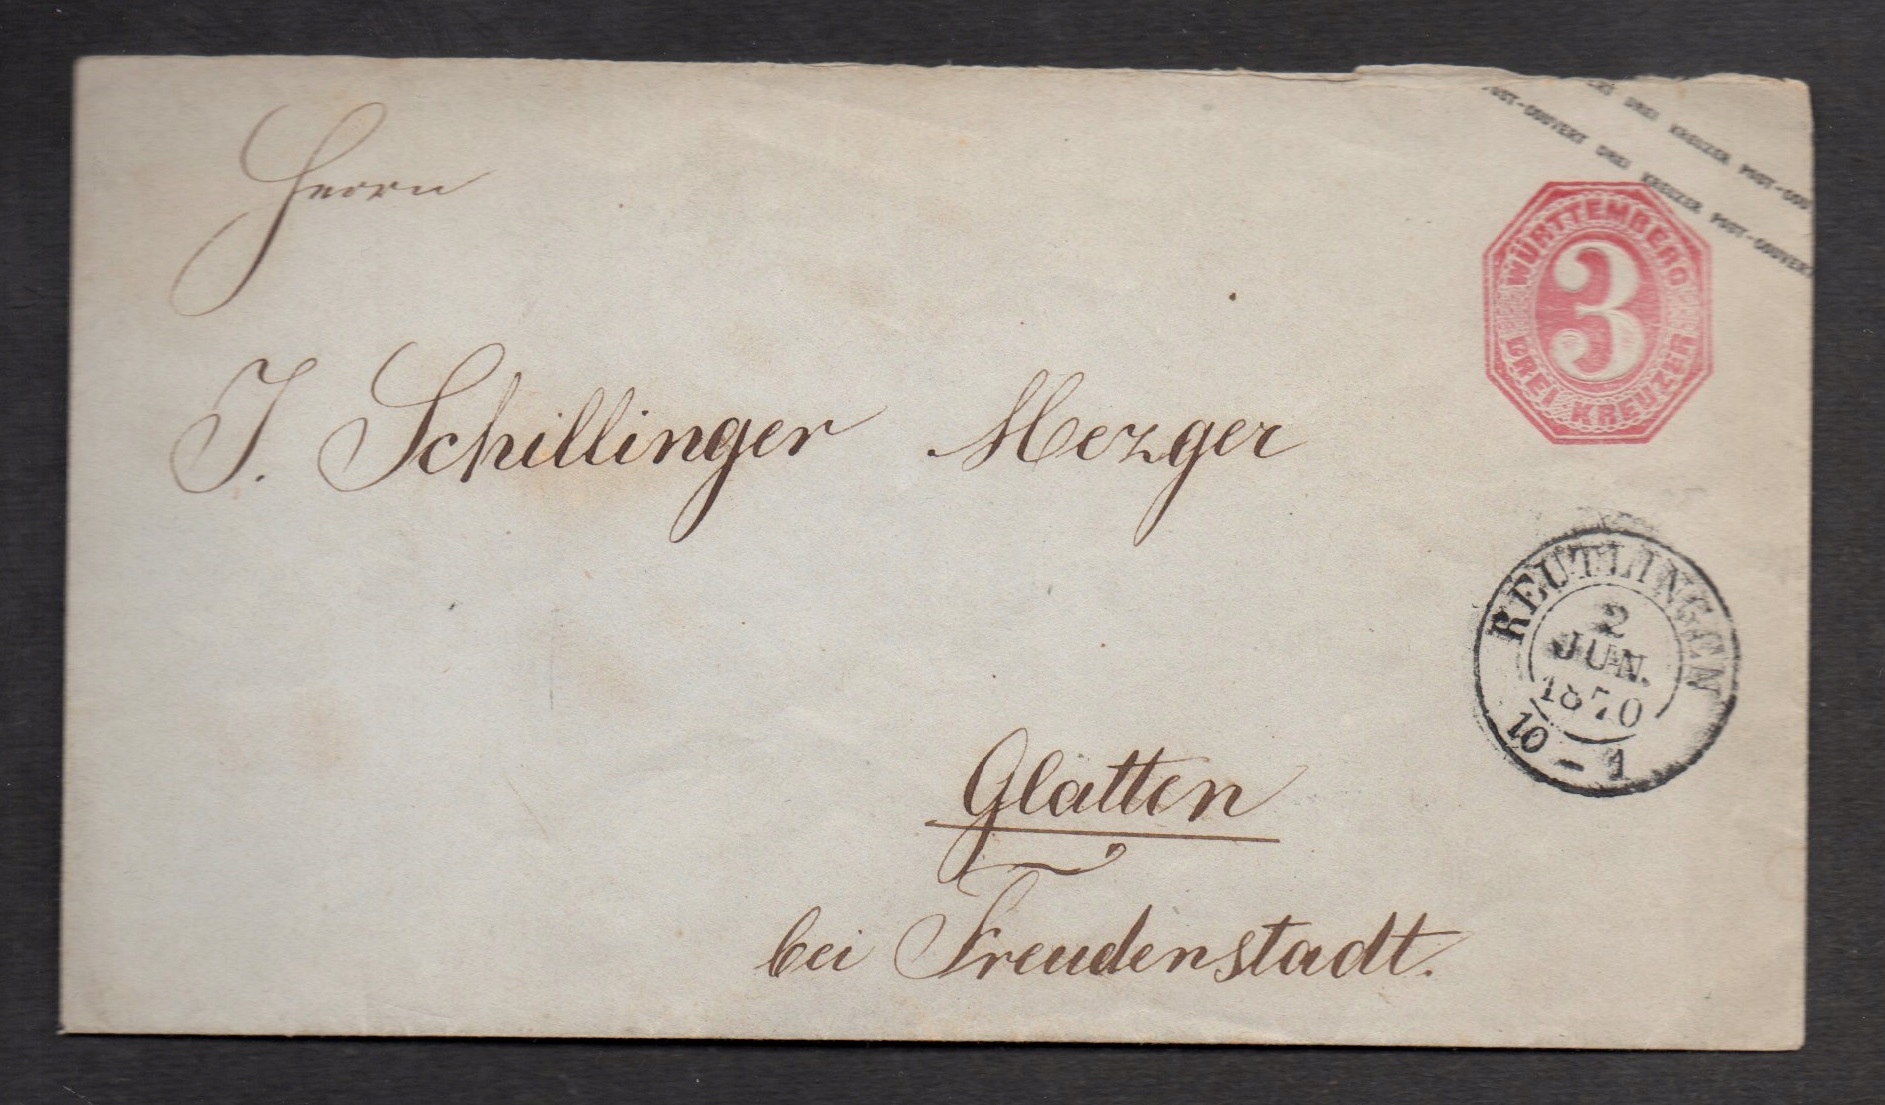 Herrn
J. Schillinger Mezger
Glatten
bei Freudenstadt.
DREI KREUZER POST-COU
POST-COUVERT DREI KREUZER POST-COUVER
WÜRTTEMBERG
3
DREI KREUZER
REUTLINGEN
2
JUN.
1870
10 - 1